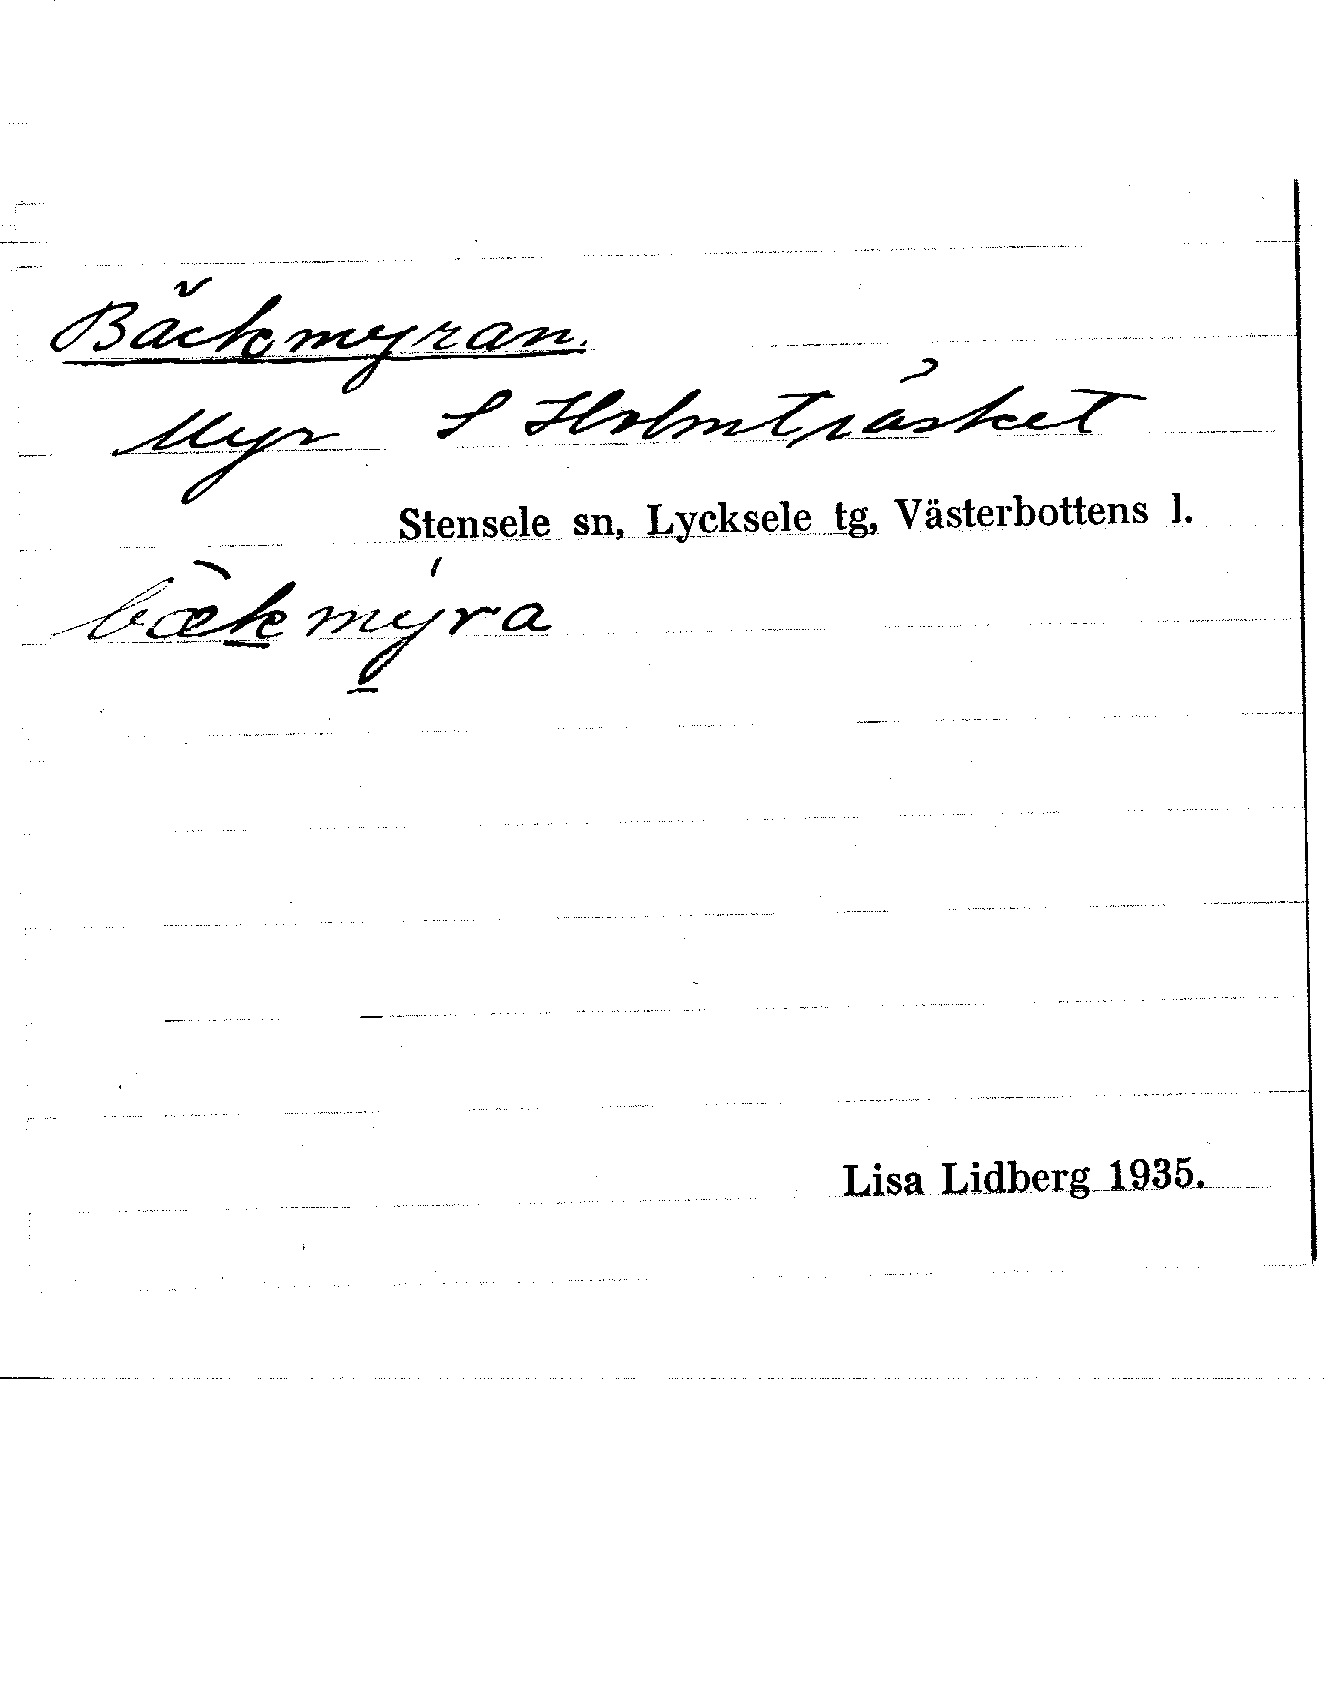 Bäckmyran.
Myr S Holmträsket
Stensele sn, Lycksele tg, Västerbottens l.
bæ̀kmýra
Lisa Lidberg 1935.